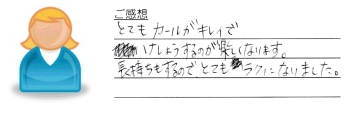 ご感想
とてもカールがキレイで
けしょうするのが楽しくなります。
長持ちもするので、とてもラクになりました。